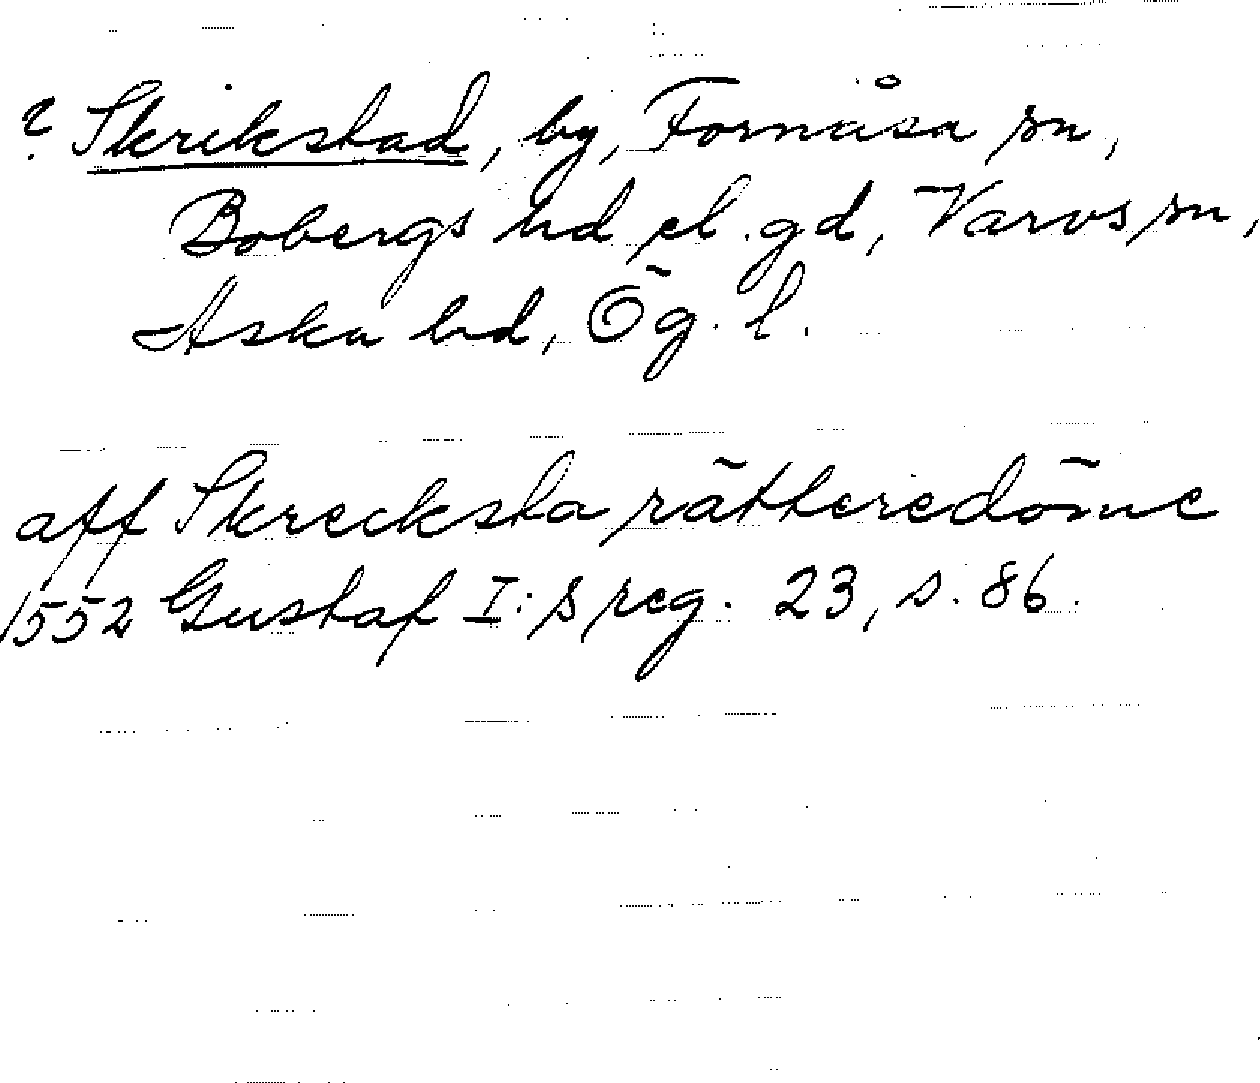 ? Skrikstad, by, Fornåsa sn,
Bobergs hd el. gd, Varvs sn,
Aska hd, Ög. l.
aff Skrecksta rätteredöme
1552 Gustaf I:s reg. 23, s. 86.